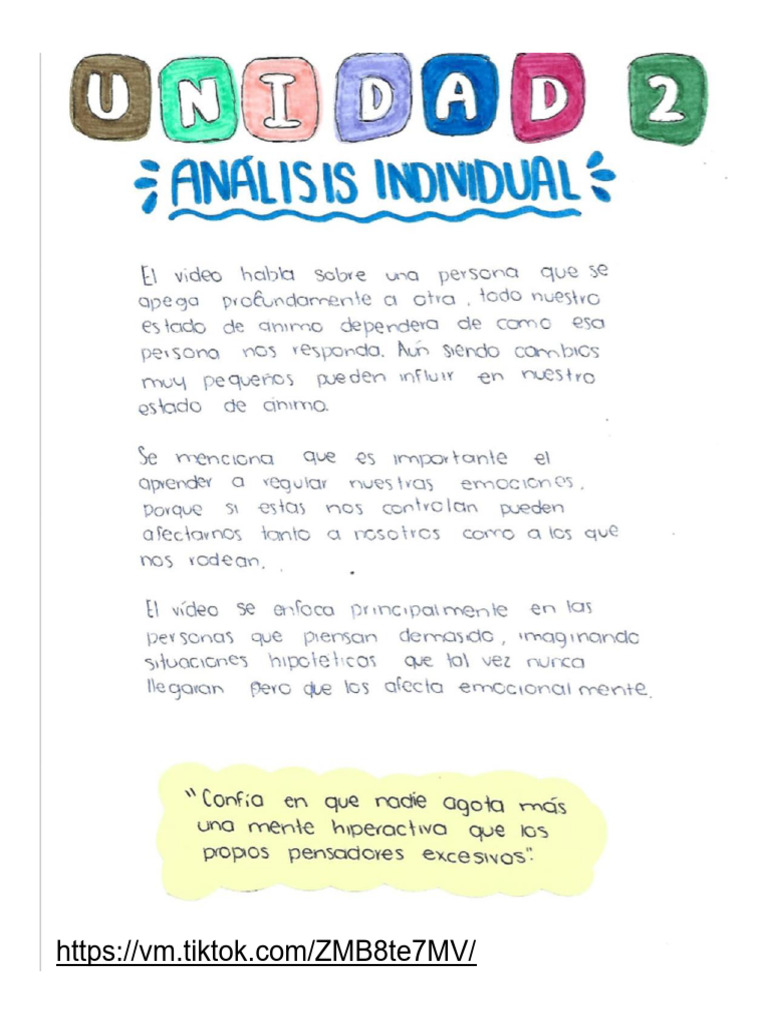 UNIDAD 2
ANÁLISIS INDIVIDUAL
El video habla sobre una persona que se
apega profundamente a otra, todo nuestro
estado de animo dependera de como esa
persona nos responda. Aún siendo cambios
muy pequeños pueden influir en nuestro
estado de ánimo.
Se menciona que es importante el
aprender a regular nuestras emociones,
porque si estas nos controlan pueden
afectarnos tanto a nosotros como a los que
nos rodean.
El vídeo se enfoca principalmente en las
personas que piensan demasido, imaginando
situaciones hipoteticas que tal vez nunca
llegaran pero que los afecta emocionalmente.
"Confía en que nadie agota más
una mente hiperactiva que los
propios pensadores excesivos".
https://vm.tiktok.com/ZMB8te7MV/